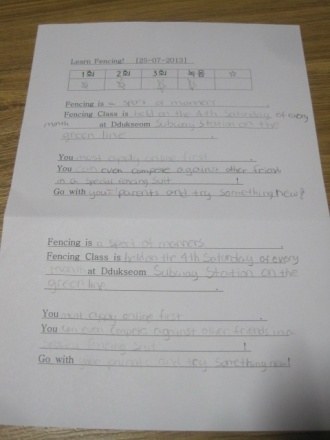 Learn Fencing! [25-07-2015]
1회 2회 3회 녹음 ☆
Fencing is a sport of manners.
Fencing Class is held on the 4th Saturday of every
month at Ddukseom Subway Station on the
green line.
You must apply online first.
You can even compete against other friends
in a special fencing suit!
Go with your parents and try something new!
Fencing is a sport of manners.
Fencing Class is held on the 4th Saturday of every
month at Ddukseom Subway Station on the
green line.
You must apply online first.
You can even compete against other friends in a
special fencing suit!
Go with your parents and try something new!